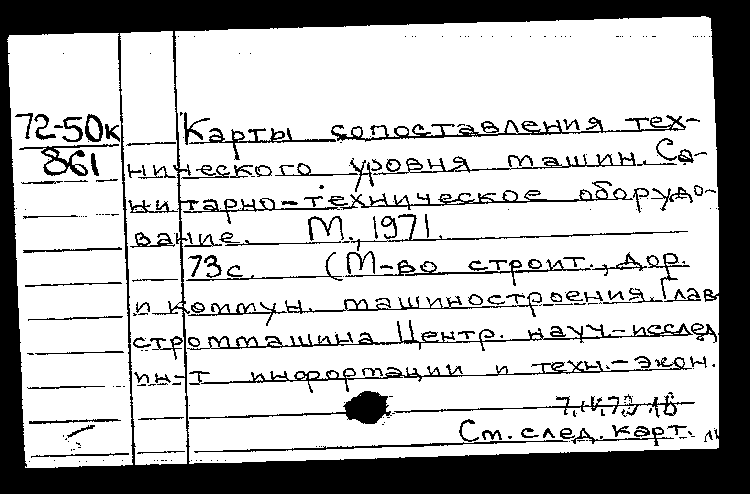 72-50к
861
Карты сопоставления тех-
нического уровня машин. Са-
нитарно-техническое оборудо-
вание. М., 1971.
73 с. (М-во строит., дор.
и коммун. машиностроения. Глав
строммашина Центр. науч.-исслед
ин-т информации и техн.-экон.
См. след. карт.